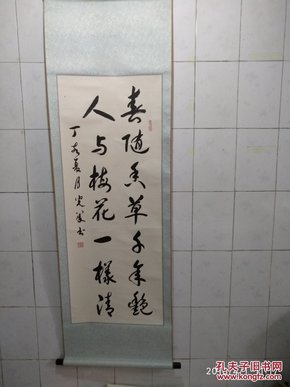 春随香草千年艳
人与梅花一樣清
丁亥夏月
书
孔夫子旧书网